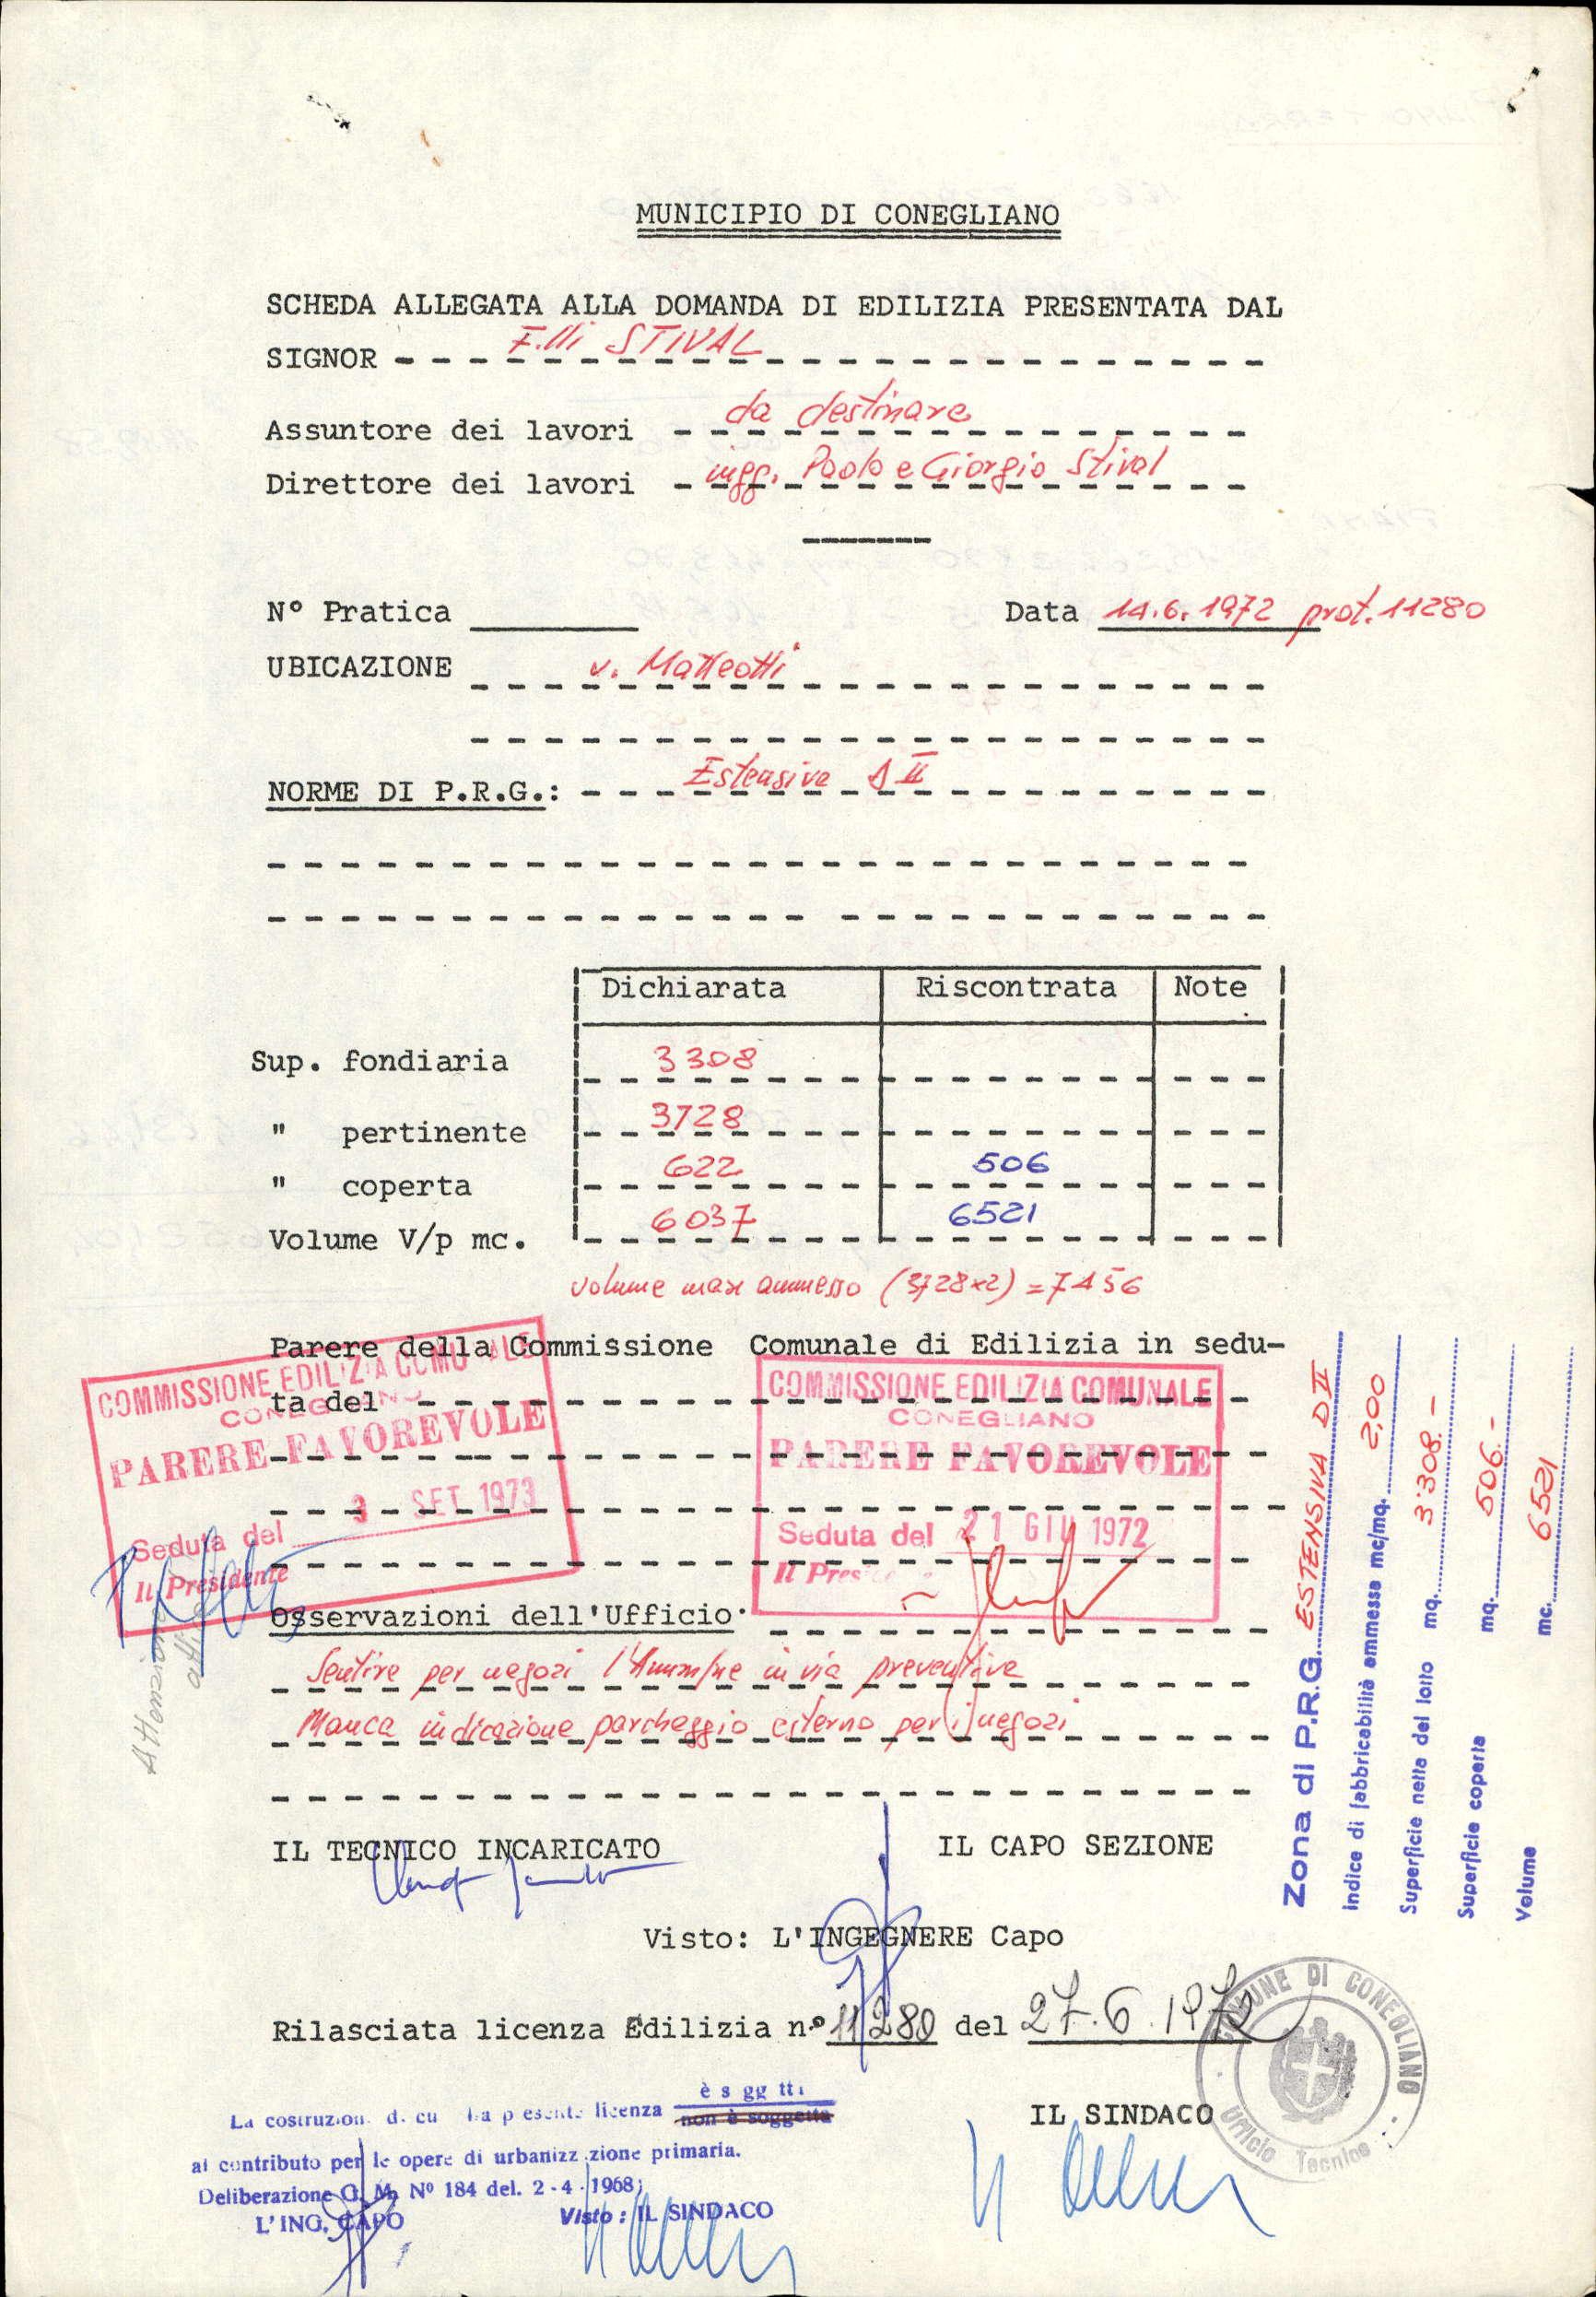 MUNICIPIO DI CONEGLIANO
SCHEDA ALLEGATA ALLA DOMANDA DI EDILIZIA PRESENTATA DAL
SIGNOR F.lli STIVAL
Assuntore dei lavori da destinare
Direttore dei lavori ingg. Paolo e Giorgio Stival
N° Pratica Data 14.6.1972 prot. 11280
UBICAZIONE v. Matteotti
NORME DI P.R.G.: Estensiva D II
Dichiarata Riscontrata Note
Sup. fondiaria 3308
" pertinente 3728
" coperta 622 506
Volume V/p mc. 6037 6521
volume max ammesso (3728x2) = 7456
Parere della Commissione Comunale di Edilizia in sedu-
ta del
COMMISSIONE EDILIZIA COMUNALE
CONEGLIANO
PARERE FAVOREVOLE
Seduta del 3 SET 1973
Il Presidente
COMMISSIONE EDILIZIA COMUNALE
CONEGLIANO
PARERE FAVOREVOLE
Seduta del 21 GIU 1972
Il Pres
Osservazioni dell'Ufficio
Sentire per negozi l'Amm/ne in via preventiva
Manca indicazione parcheggio esterno per i negozi
Attenzione
IL TECNICO INCARICATO IL CAPO SEZIONE
Visto: L'INGEGNERE Capo
Rilasciata licenza Edilizia n.° 11280 del 27.6.1972
IL SINDACO
COMUNE DI CONEGLIANO
Ufficio Tecnico
è s gg tt
La costruzion d. cu la p esente licenza non è soggetta
al contributo per le opere di urbanizz zione primaria.
Deliberazione C. M. N° 184 del. 2-4-1968
L'ING. CAPO Visto: IL SINDACO
Zona di P.R.G. ESTENSIVA D II
Indice di fabbricabilità ammessa mc/mq. 2,00
Superficie netta del lotto mq. 3'308.-
Superficie coperta mq. 506.-
Volume mc. 6521